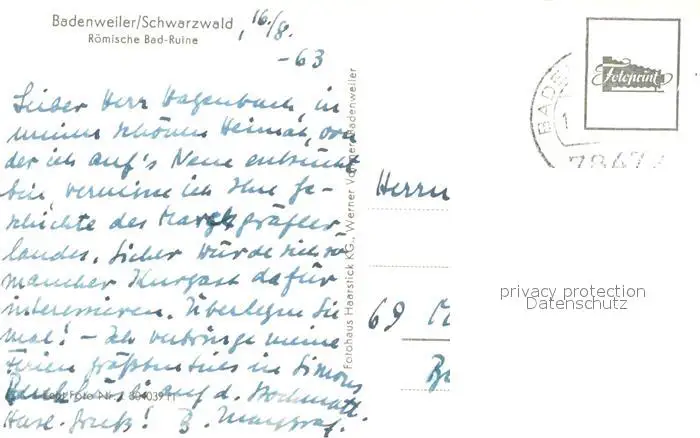 Badenweiler/Schwarzwald
Römische Bad-Ruine
, 16./8.
-63
Lieber Herr Hagenbach, in
meiner schönen Heimat, von
der ich auf's Neue entzückt
bin, vermisse ich Ihre Ge-
schichte des Markgräfler-
landes. Sicher würde sich so
mancher Kurgast dafür
interessieren. Überlegen Sie
mal! - Ich verbringe meine
Ferien größtenteils in Simons
auf d.
Herzl. Gruß!
Fotohaus Haarstick KG., Werner
Badenweiler
BADE
Fotoprint
7847
Herrn
69
privacy protection
Datenschutz